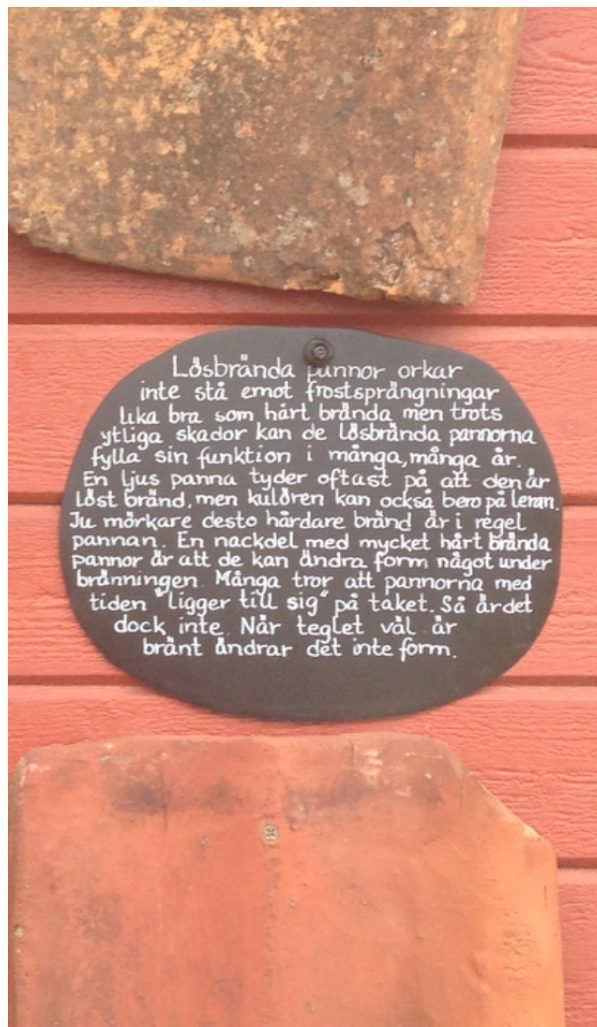 Lösbrända pannor orkar
inte stå emot frostsprängningar
lika bra som hårt brända men trots
ytliga skador kan de lösbrända pannorna
fylla sin funktion i många, många år.
En ljus panna tyder oftast på att den är
löst bränd, men kulören kan också bero på leran.
Ju mörkare desto hårdare bränd är i regel
pannan. En nackdel med mycket hårt brända
pannor är att de kan ändra form något under
bränningen. Många tror att pannorna med
tiden "ligger till sig" på taket. Så är det
dock inte. När teglet väl är
bränt ändrar det inte form.